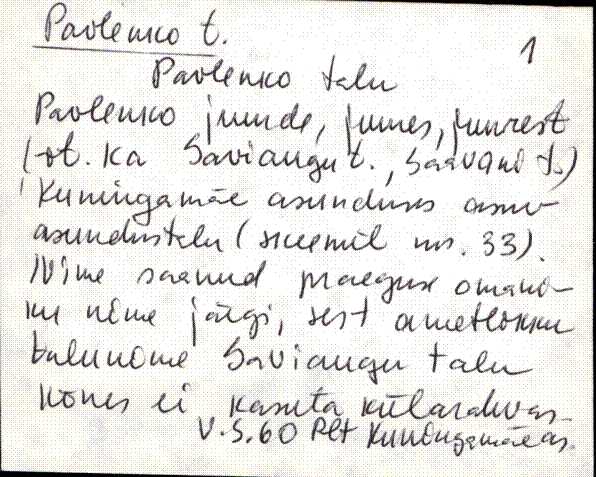 Pavlenko t.
1
Pavlenko talu
Pavlenko juude, juures, juurest
(vt. ka Saviaugu t., Saavani t.)
Kuningamäe asunduses asuv
asundustalu (skeemil nr. 33).
Nime saanud praeguse omani-
ku nime järgi, sest ametlikku
talunime Saviaugu talu
kones ei kasuta külarahvas.
V.S. 60 Plt Kuningamäe as.